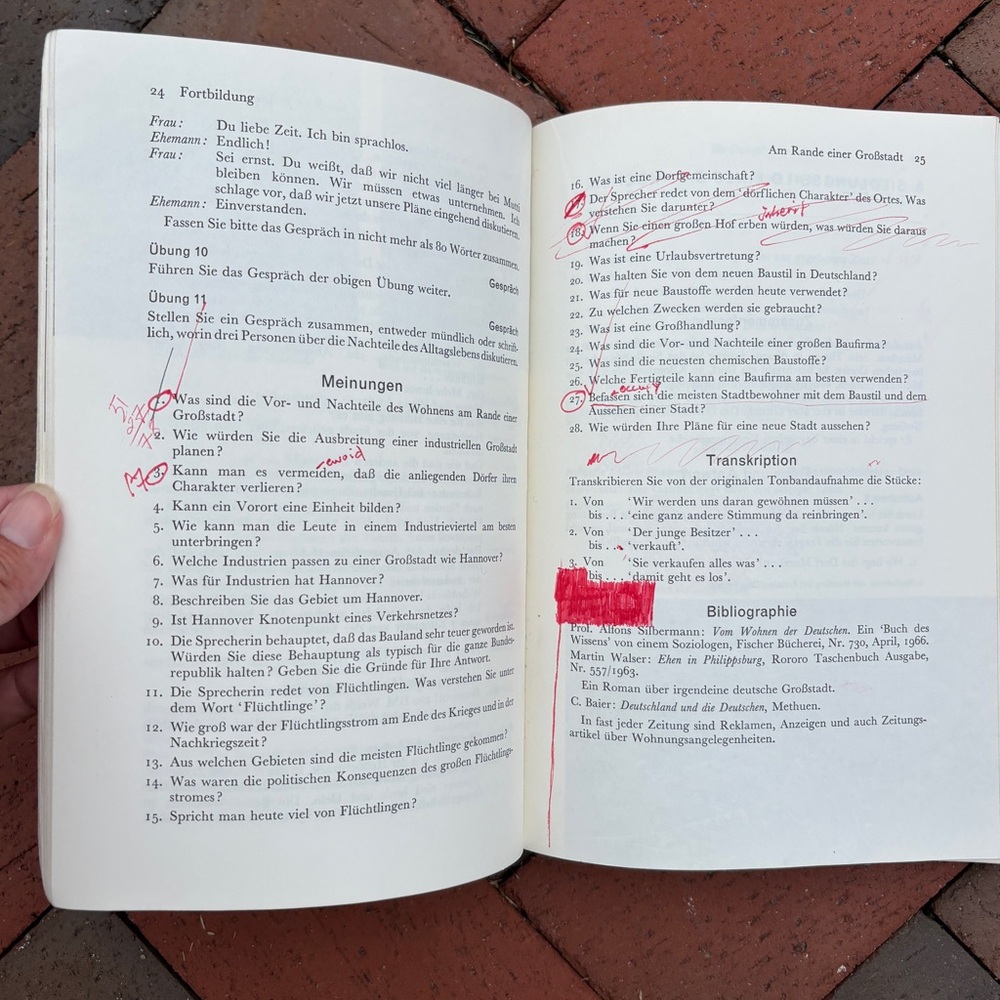 24 Fortbildung
Frau: Du liebe Zeit. Ich bin sprachlos.
Ehemann: Endlich!
Frau: Sei ernst. Du weißt, daß wir nicht viel länger bei Mutti
bleiben können. Wir müssen etwas unternehmen. Ich
schlage vor, daß wir jetzt unsere Pläne eingehend diskutieren.
Ehemann: Einverstanden.
Fassen Sie bitte das Gespräch in nicht mehr als 80 Wörter zusammen.
Übung 10
Gespräch
Führen Sie das Gespräch der obigen Übung weiter.
Übung 11
Gespräch
Stellen Sie ein Gespräch zusammen, entweder mündlich oder schrift-
lich, worin drei Personen über die Nachteile des Alltagslebens diskutieren.
Meinungen
1. Was sind die Vor- und Nachteile des Wohnens am Rande einer
Großstadt?
2. Wie würden Sie die Ausbreitung einer industriellen Großstadt
planen?
avoid
3. Kann man es vermeiden, daß die anliegenden Dörfer ihren
Charakter verlieren?
4. Kann ein Vorort eine Einheit bilden?
5. Wie kann man die Leute in einem Industrieviertel am besten
unterbringen?
6. Welche Industrien passen zu einer Großstadt wie Hannover?
7. Was für Industrien hat Hannover?
8. Beschreiben Sie das Gebiet um Hannover.
9. Ist Hannover Knotenpunkt eines Verkehrsnetzes?
10. Die Sprecherin behauptet, daß das Bauland sehr teuer geworden ist.
Würden Sie diese Behauptung als typisch für die ganze Bundes-
republik halten? Geben Sie die Gründe für Ihre Antwort.
11. Die Sprecherin redet von Flüchtlingen. Was verstehen Sie unter
dem Wort 'Flüchtlinge'?
12. Wie groß war der Flüchtlingsstrom am Ende des Krieges und in der
Nachkriegszeit?
13. Aus welchen Gebieten sind die meisten Flüchtlinge gekommen?
14. Was waren die politischen Konsequenzen des großen Flüchtlings-
stromes?
15. Spricht man heute viel von Flüchtlingen?
Am Rande einer Großstadt 25
16. Was ist eine Dorfgemeinschaft?
17. Der Sprecher redet von dem 'dörflichen Charakter' des Ortes. Was
verstehen Sie darunter?
inherit
18. Wenn Sie einen großen Hof erben würden, was würden Sie daraus
machen?
19. Was ist eine Urlaubsvertretung?
20. Was halten Sie von dem neuen Baustil in Deutschland?
21. Was für neue Baustoffe werden heute verwendet?
22. Zu welchen Zwecken werden sie gebraucht?
23. Was ist eine Großhandlung?
24. Was sind die Vor- und Nachteile einer großen Baufirma?
25. Was sind die neuesten chemischen Baustoffe?
26. Welche Fertigteile kann eine Baufirma am besten verwenden?
occupy
27. Befassen sich die meisten Stadtbewohner mit dem Baustil und dem
Aussehen einer Stadt?
28. Wie würden Ihre Pläne für eine neue Stadt aussehen?
Transkription
Transkribieren Sie von der originalen Tonbandaufnahme die Stücke:
1. Von 'Wir werden uns daran gewöhnen müssen' . . .
bis . . . 'eine ganz andere Stimmung da reinbringen'.
2. Von 'Der junge Besitzer' . . .
bis . . . 'verkauft'.
3. Von 'Sie verkaufen alles was' . . .
bis . . . 'damit geht es los'.
Bibliographie
Prof. Alfons Silbermann: Vom Wohnen der Deutschen. Ein 'Buch des
Wissens' von einem Soziologen, Fischer Bücherei, Nr. 730, April, 1966.
Martin Walser: Ehen in Philippsburg, Rororo Taschenbuch Ausgabe,
Nr. 557/1963.
Ein Roman über irgendeine deutsche Großstadt.
C. Baier: Deutschland und die Deutschen, Methuen.
In fast jeder Zeitung sind Reklamen, Anzeigen und auch Zeitungs-
artikel über Wohnungsangelegenheiten.